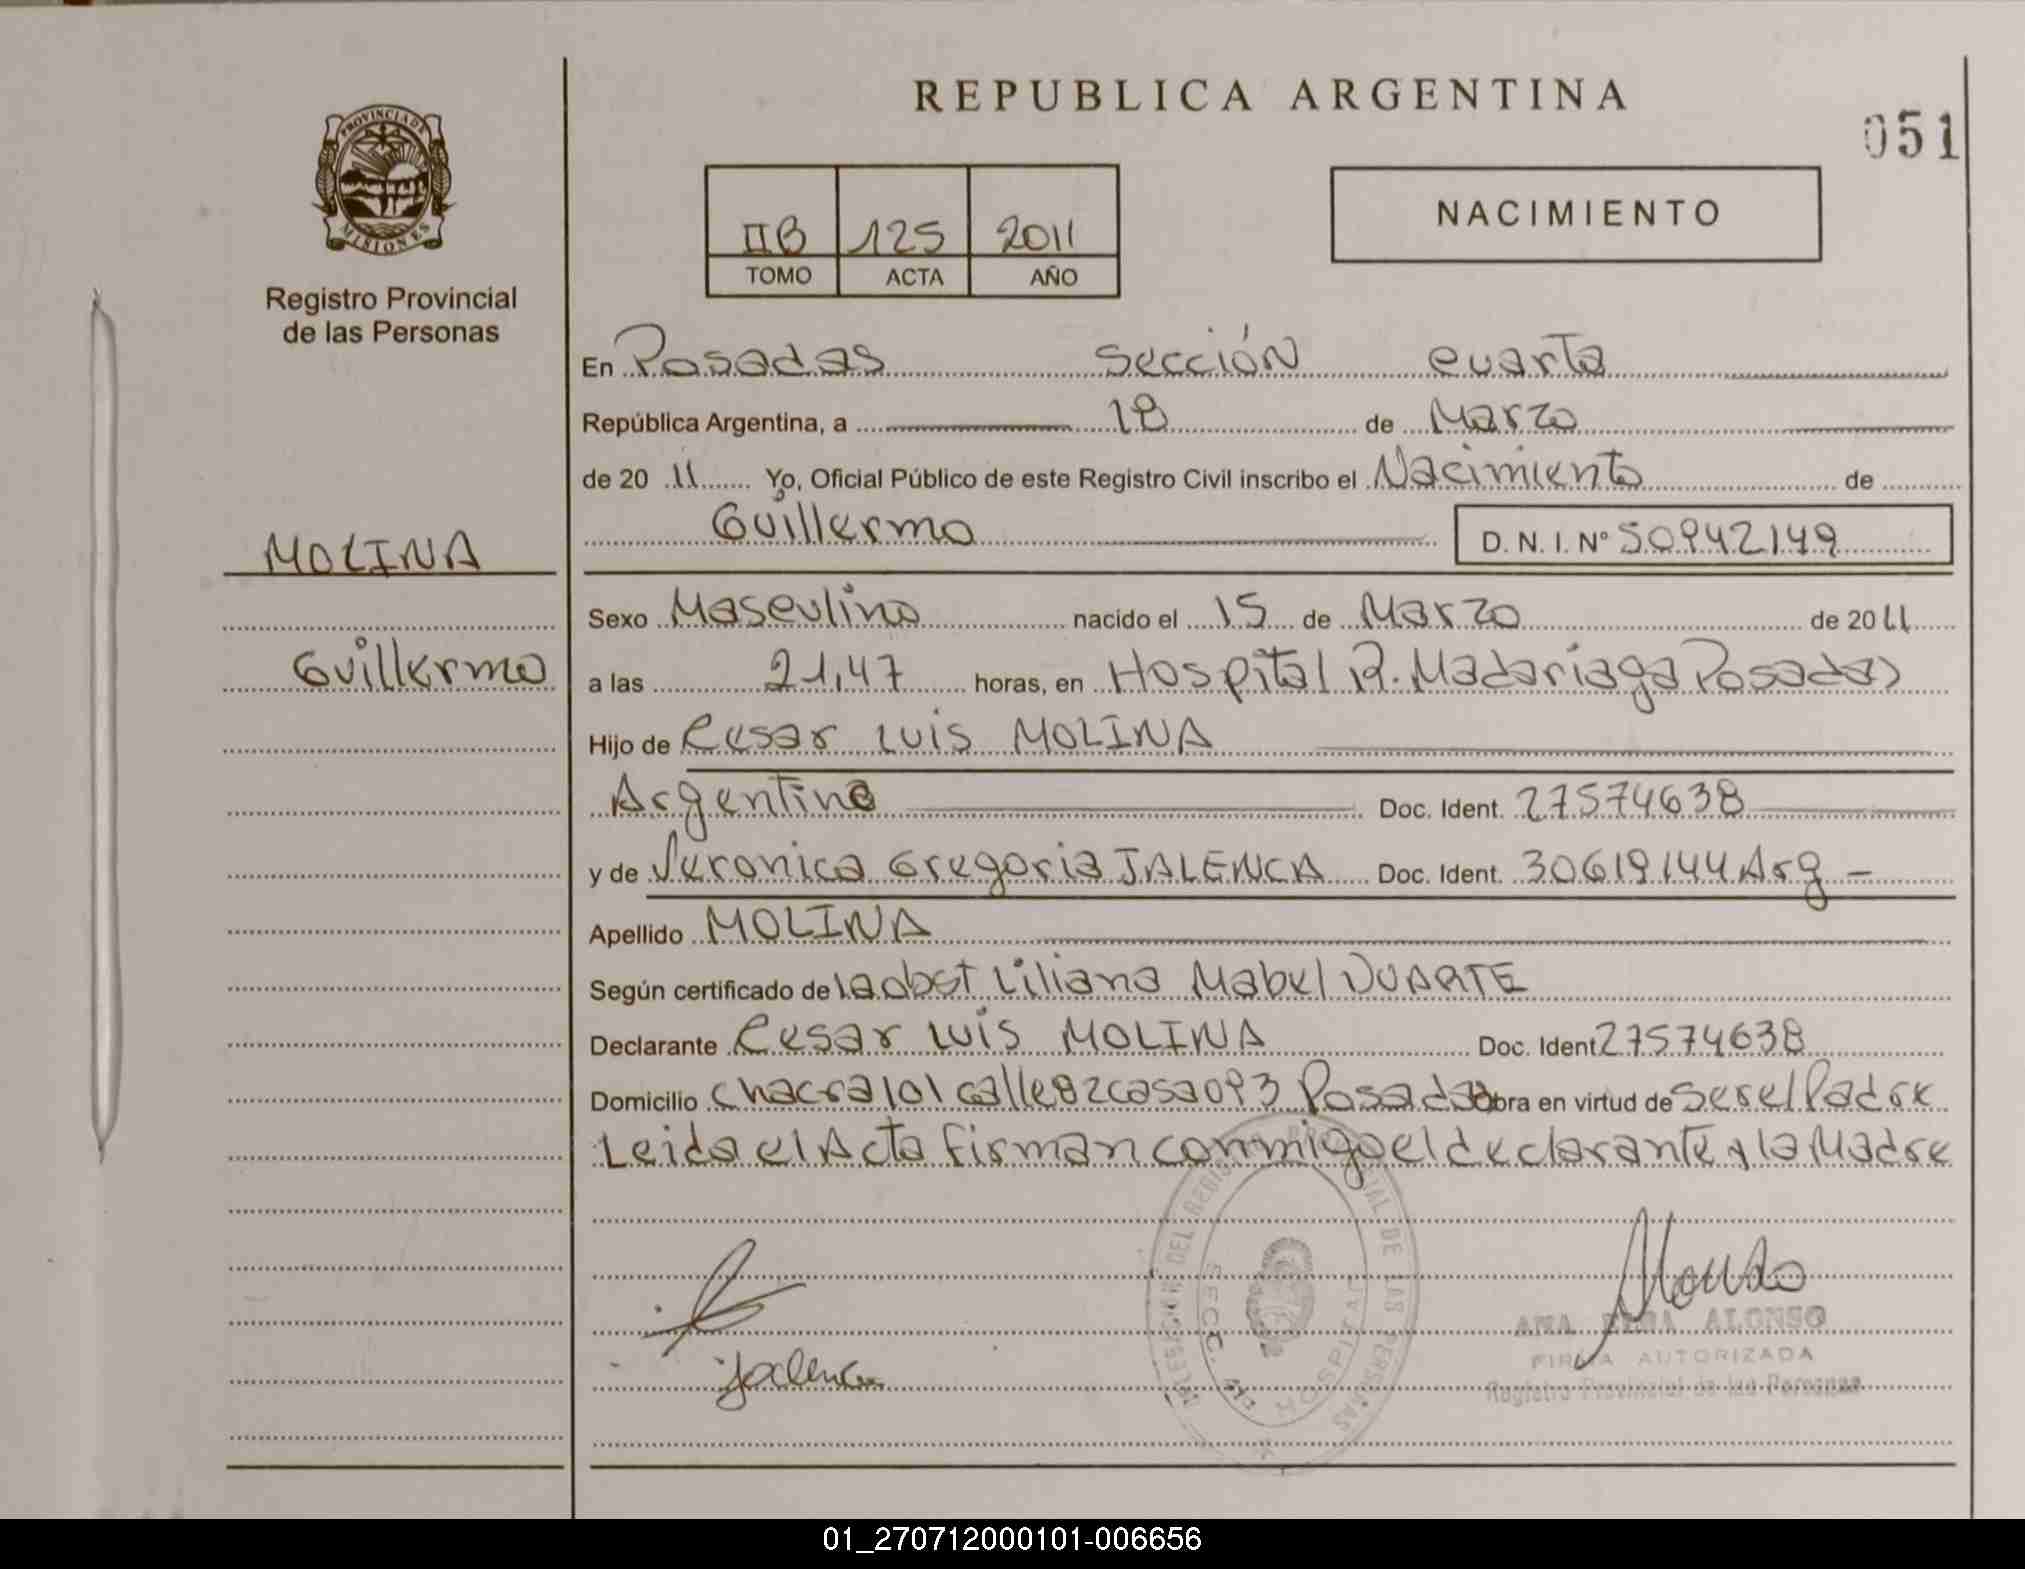 REPUBLICA ARGENTINA
051
PROVINCIA DE
MISIONES
Registro Provincial
de las Personas
IIB 125 2011
TOMO ACTA AÑO
NACIMIENTO
En Posadas sección cuarta
República Argentina, a 18 de Marzo
de 20 11 Yo, Oficial Público de este Registro Civil inscribo el Nacimiento de
Guillermo D. N. I. Nº 50942149
MOLINA
Guillermo
Sexo Masculino nacido el 15 de Marzo de 2011
a las 21,47 horas, en Hospital R. Madariaga Posadas
Hijo de Cesar Luis MOLINA
Argentino Doc. Ident. 27574638
y de Veronica Gregoria JALENCA Doc. Ident. 30619144 Arg -
Apellido MOLINA
Según certificado de la obst Liliana Mabel DUARTE
Declarante Cesar Luis MOLINA Doc. Ident 27574638
Domicilio chacra 101 calle 82 casa 093 Posadas obra en virtud de ser el Padre
Leida el Acta firman conmigo el declarante y la Madre
Jalenca
ALONSO
FIRMA AUTORIZADA
Registro Provincial de las Personas
SECC. HOSPITAL
01_270712000101-006656